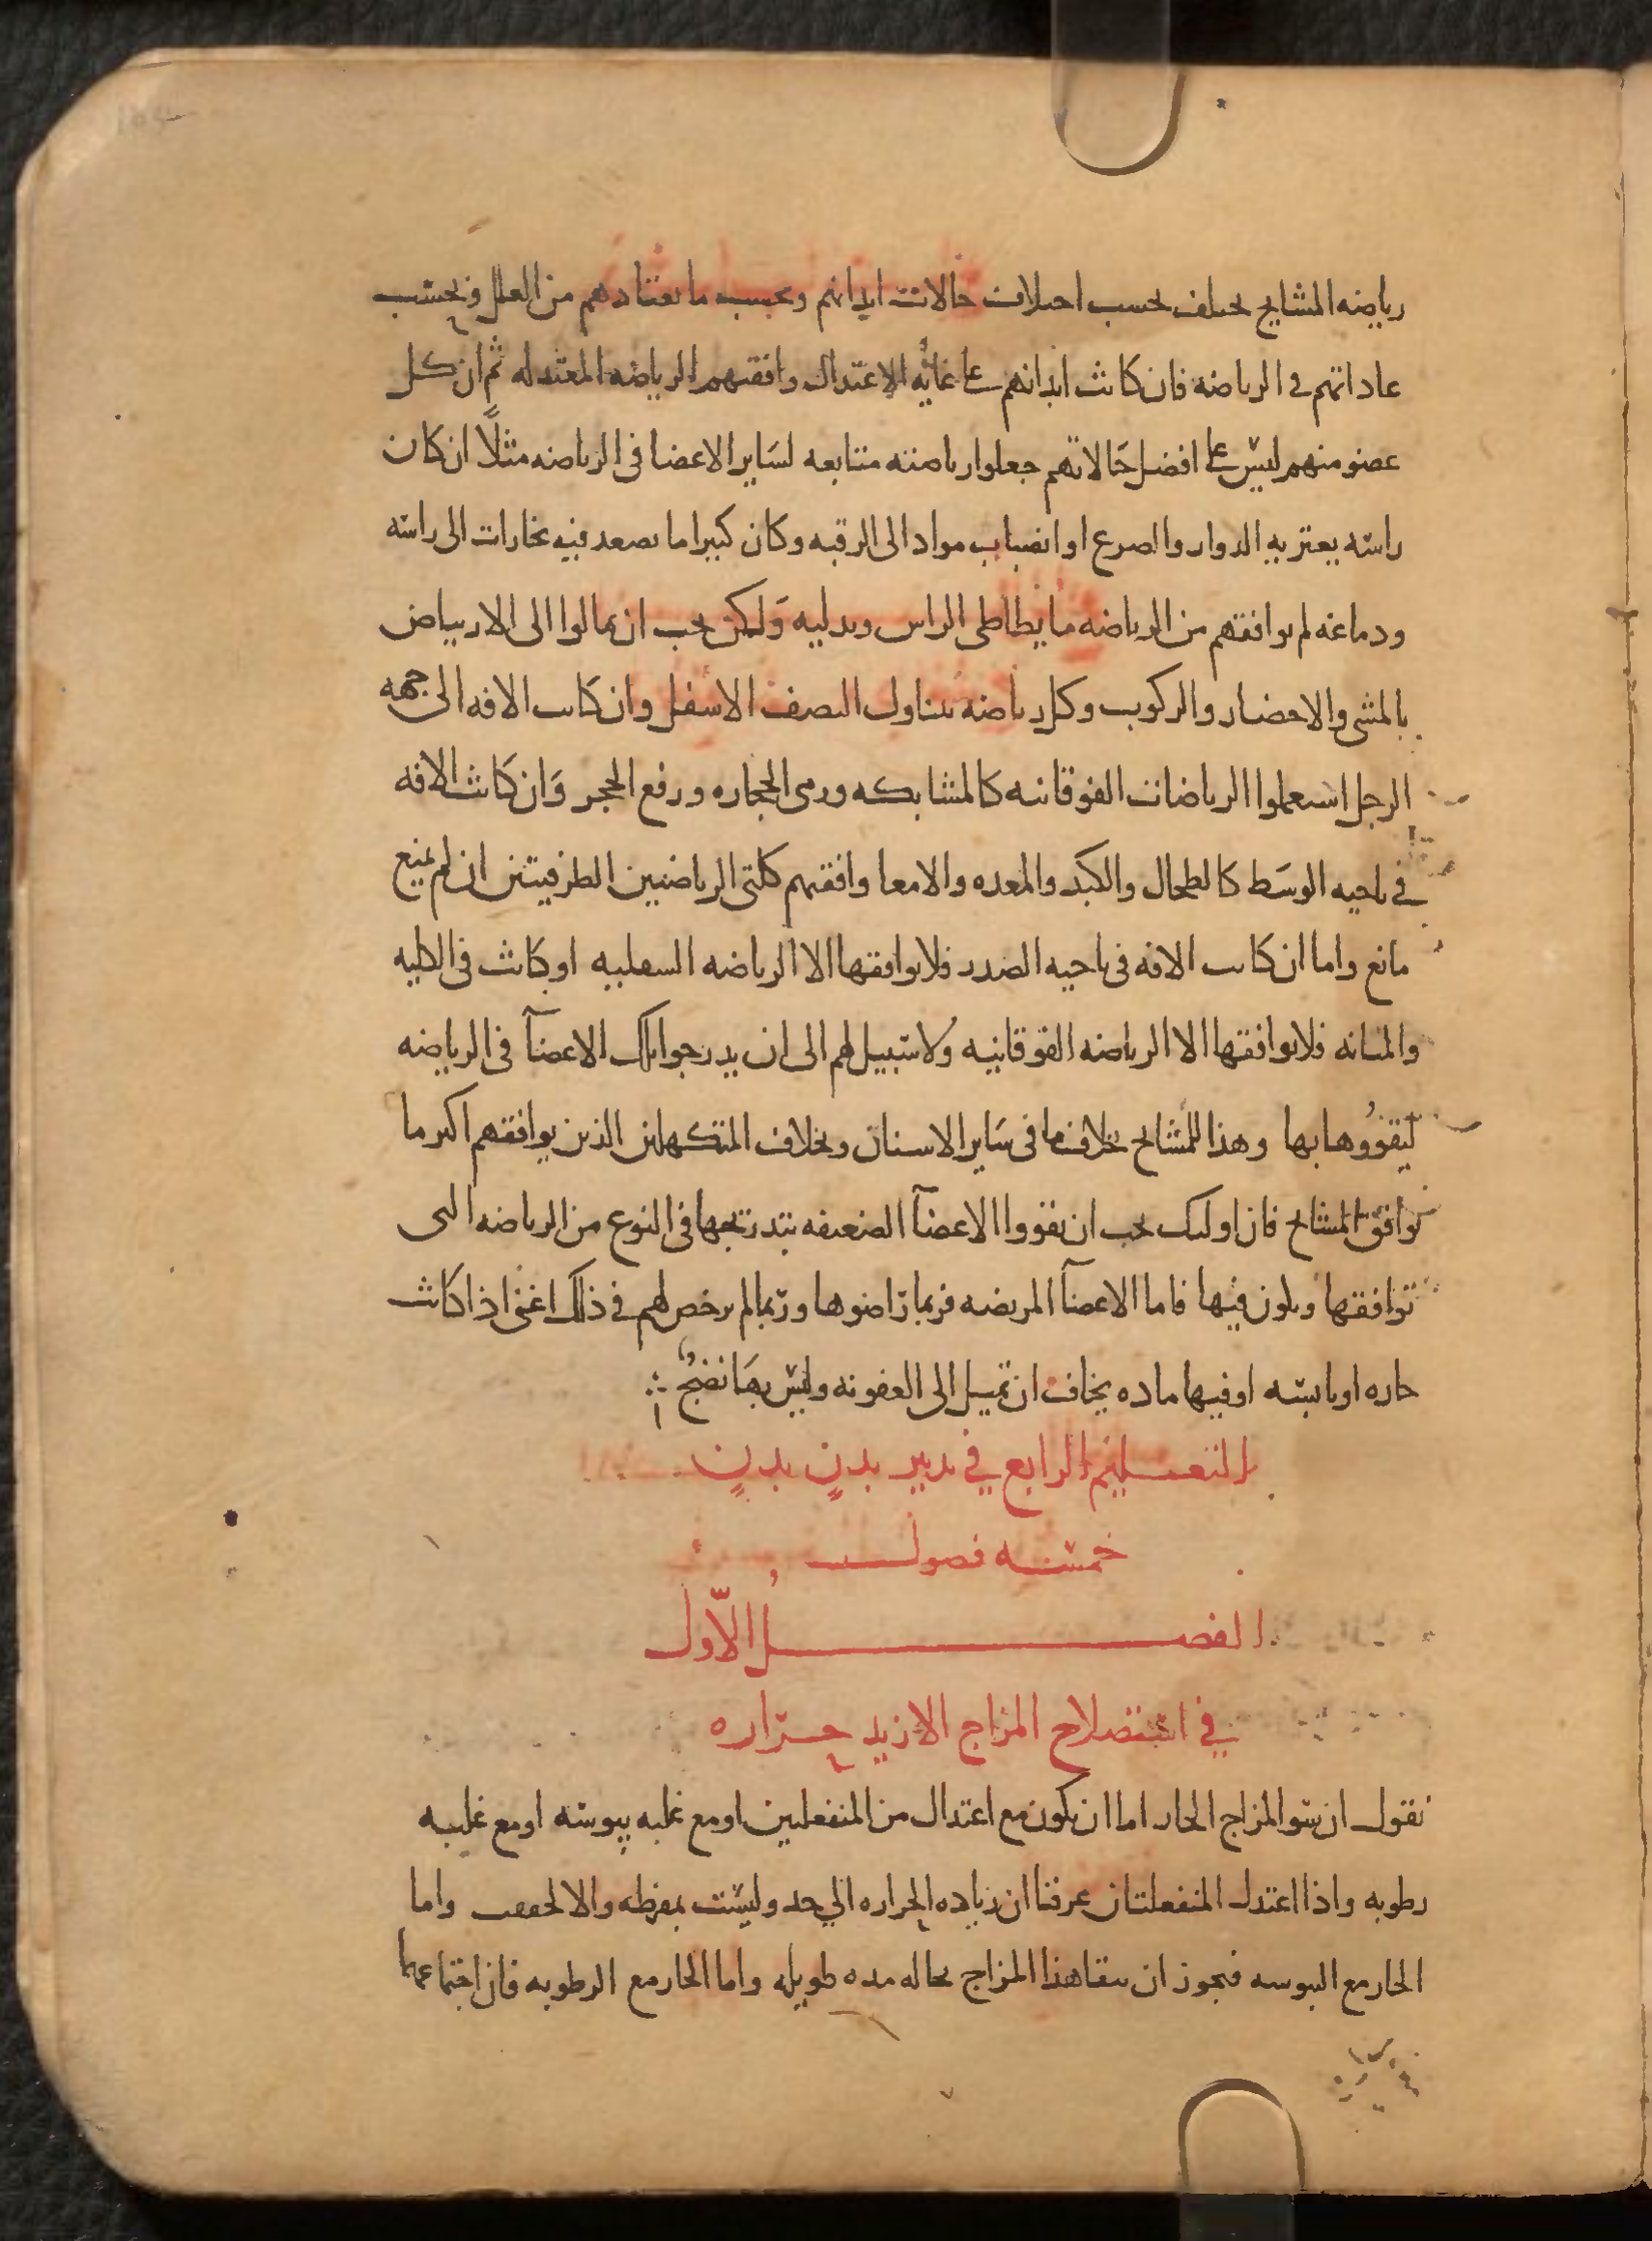 رياضه المشايخ تختلف بحسب اختلاف حالات ابدانهم وبحسب ما يعتادهم من العلل وبحسب
عاداتهم في الرياضه فان كانت ابدانهم على غايه الاعتدال وافقتهم الرياضه المعتدله ثم ان كل
عضو منهم ليس على افضل حالاتهم جعلوا رياضته متتابعه لساير الاعضا في الرياضه مثلًا ان كان
راسه يعتريه الدوار والصرع او انصباب مواد الى الرقبه وكان كثيرا ما يصعد فيه بخارات الى راسه
ودماغه لم يوافقهم من الرياضه ما يطاطى الراس ويدليه ولكن يجب ان يمالوا الى الارتياض
بالمشى والاحضار والركوب وكل رياضه تتناول النصف الاسفل وان كانت الافه الى جهه
الرجل استعملوا الرياضات الفوقانيه كالمشابكه ورمى الحجاره ورفع الحجر وان كانت الافه
في ناحيه الوسط كالطحال والكبد والمعده والامعا وافقتهم كلتى الرياضتين الطرفيتين ان لم يمنع
مانع واما ان كانت الافه في ناحيه الصدر فلا يوافقها الا الرياضه السفليه او كانت في الكليه
والمثانه فلا يوافقها الا الرياضه الفوقانيه ولا سبيل لهم الى ان يدرجوا تلك الاعضآ في الرياضه
ليقووها بها وهذا للمشايخ بخلاف ما في ساير الاسنان وبخلاف المتكهلين الذين يوافقهم اكثر ما
يوافق المشايخ فان اوليك يجب ان يقووا الاعضآ الضعيفه بتدريجها في النوع من الرياضه التى
توافقها ويلون فيها فاما الاعضآ المريضه فربما راضوها وربما لم يرخص لهم في ذلك اعنى اذا كانت
حاره او يابسه او فيها ماده يخاف ان تميل الى العفونه وليس بها نضج
التعليم الرابع في تدبير بدنٍ بدنٍ
خمسه فصول
الفصل الاوّل
في استصلاح المزاج الازيد حراره
نقول ان سو المزاج الحار اما ان يكون مع اعتدال من المنفعلين او مع غلبه يبوسه او مع غلبه
رطوبه واذا اعتدل المنفعلتان عرفنا ان زياده الحراره الي حد وليست بمفرطه والا لجففت واما
الحار مع اليبوسه فيجوز ان يبقا هذا المزاج بحاله مده طويله واما الحار مع الرطوبه فان اجتماعهما